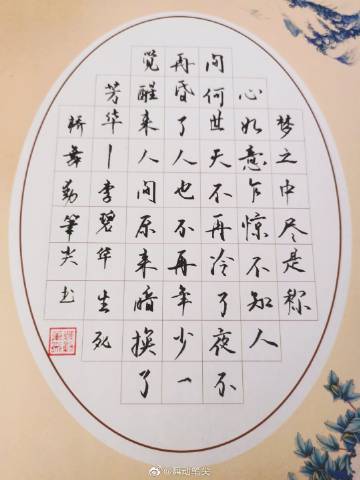 梦之中尽是称
心如意乍惊不知人
问何世天不再冷了夜不
再昏了人也不再年少一
觉醒来人间原来暗换了
芳华—李碧华生死
桥舞動筆尖书
@舞动笔尖